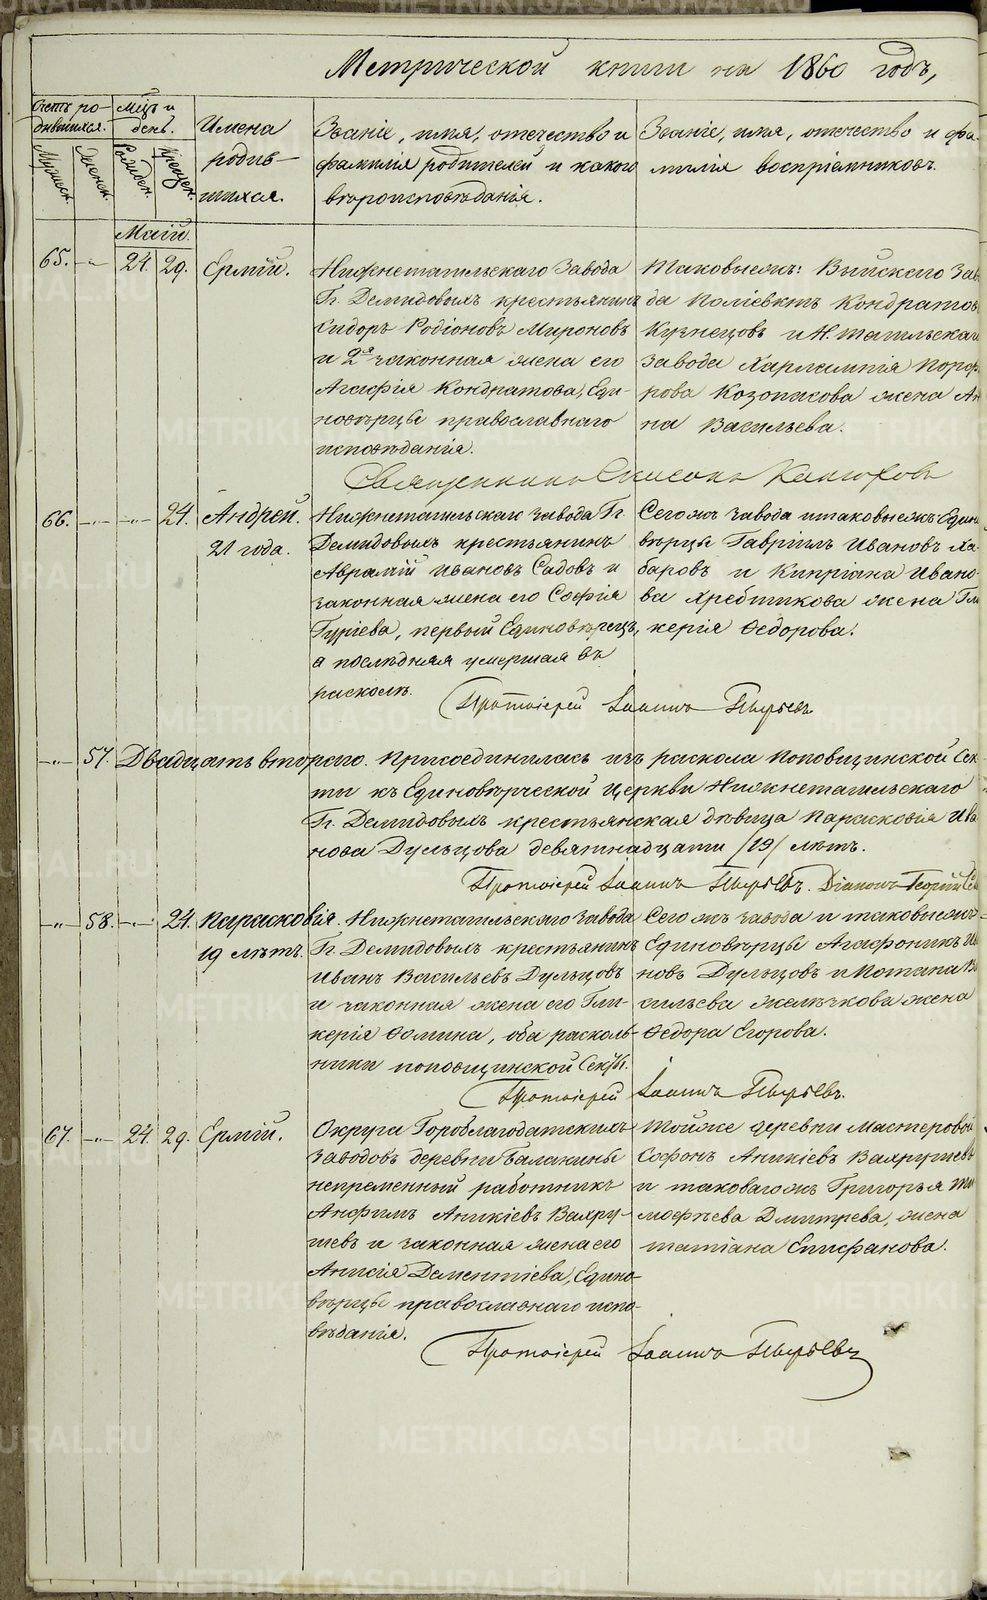 Метрической книги на 1860 годъ,
Счетъ родившихся.
Мужеск.
Женск.
Мцъ и день.
Рожден.
Крещен.
Имена родившихся.
Званіе, имя, отечество и
фамилія родителей и какого
вѣроисповѣданія.
Званіе, имя, отечество и фа-
милія воспріемниковъ.
Маій.
65. -„- 24. 29. Ермій.
Нижнетагильскаго Завода
Гг. Демидовыхъ крестьянинъ
Сидоръ Родіоновъ Мироновъ
и 2я законная жена его
Агафія Кондратова, Еди-
новѣрцы православнаго
исповѣданія.
Таковыежъ: Выйскаго Заво-
да Поліевктъ Кондратовъ
Кузнецовъ и Н. Тагильскаго
завода Харлампія Порфи-
рова Козопасова жена Ан-
на Васильева.
Священникъ Симеонъ
66. -„- -„- 24. Андрей.
21 года.
Нижнетагильскаго завода Гг.
Демидовыхъ крестьянинъ
Аврамій Ивановъ Садовъ и
законная жена его Софія
Гуріева, первый Единовѣрецъ,
а послѣдняя умершая въ
расколѣ.
Сегожъ завода и таковыежъ Едино-
вѣрцы Гавріилъ Ивановъ Ха-
баровъ и Кипріана Ивано-
ва Хребтикова жена Гли-
керія Ѳедорова.
Протоіерей Іоаннъ Пырьевъ
-„- 57. Двадцать втораго. Присоединилась изъ раскола Поповщинской Сек-
ты къ Единовѣрческой церкви Нижнетагильскаго
Гг. Демидовыхъ крестьянская дѣвица Парасковія Ива-
нова Дульцова девятнадцати /19/ лѣтъ.
Протоіерей Іоаннъ Пырьевъ. Діаконъ Георгій
-„- 58. -„- 24. Парасковія.
19 лѣтъ.
Нижнетагильскаго Завода
Гг. Демидовыхъ крестьянинъ
Иванъ Васильевъ Дульцовъ
и законная жена его Гли-
керія Ѳомина, оба расколь-
ники поповщинской Секты.
Сегожъ завода и таковыежъ
Единовѣрцы Агафоникъ Ива-
новъ Дульцовъ и Потапа Ва-
сильева Желѣзкова жена
Ѳедора Егорова.
Протоіерей Іоаннъ Пырьевъ.
67. -„- 24. 29. Ермій.
Округа Гороблагодатскихъ
Заводовъ деревни Балакины
непременный работникъ
Анфимъ Аникіевъ Вахру-
шевъ и законная жена его
Анисія Дементіева, Едино-
вѣрцы православнаго испо-
вѣданія.
Тойже деревни Мастеровой
Софонъ Аникіевъ Вахрушевъ
и таковагожъ Григорья Ти-
мофѣева Дмитрева, жена
Татіана Епифанова.
Протоіерей Іоаннъ Пырьевъ
METRIKI.GASO-URAL.RU